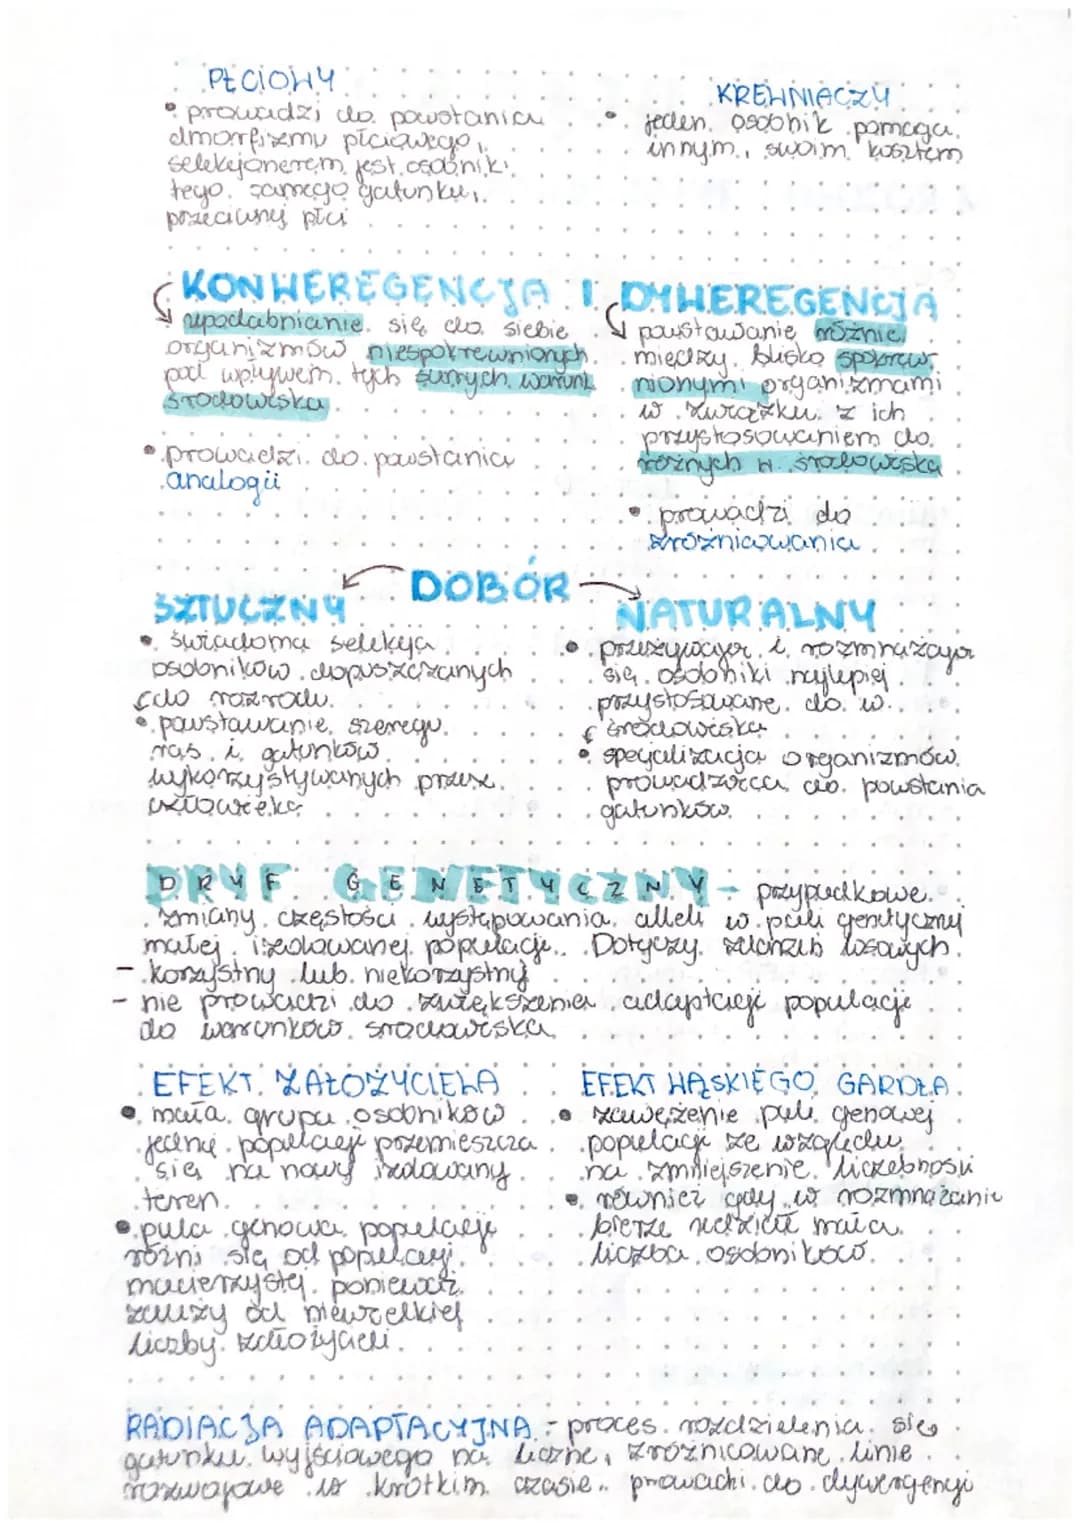 PŁCIOWY
• prowadzi do powstania
dmorfizmu płciowego,
selekcjonerem jest osobnik
tego samego gatunku,
przeciwnej płci
KREWNIACZY
• jeden osobnik pomaga
innym, swoim kosztem
KONWEREGENCJA I DYWEREGENCJA
upodabnianie się do siebie
organizmów niespokrewnionych
pod wpływem tych samych warunk
środowiska
• prowadzi do powstania
analogii
powstawanie różnic
między blisko spokrew
nionymi organizmami
w związku z ich
przystosowaniem do
różnych w środowiska
• prowadzi do
zróżnicowania
DOBÓR
SZTUCZNY
• świadoma selekcja
osobników dopuszczanych
do rozrodu
• powstawanie szeregu
ras i gatunków
wykorzystywanych przez
człowieka
NATURALNY
• przeżywają i rozmnażają
się osobniki najlepiej
przystosowane do w.
środowiska
• specjalizacja organizmów
prowadząca do powstania
gatunków
DRYF GENETYCZNY - przypadkowe
zmiany częstości występowania alleli w puli genetycznej
małej izolowanej populacji. Dotyczy zdarzeń losowych.
- korzystny lub niekorzystny
- nie prowadzi do zwiększenia adaptacji populacji
do warunków środowiska
EFEKT ZAŁOŻYCIELA
• mała grupa osobników
jednej populacji przemieszcza
się na nowy izolowany
teren
• pula genowa populacji
różni się od populacji
macierzystej ponieważ
zależy od niewielkiej
liczby założycieli
EFEKT WĄSKIEGO GARDŁA
• zawężenie puli genowej
populacji ze względu
na zmniejszenie liczebności
• również gdy w rozmnażanie
bierze udział mała
liczba osobników.
RADIACJA ADAPTACYJNA - proces rozdzielenia się
gatunku wyjściowego na liczne, zróżnicowane linie
rozwojowe w krótkim czasie. prowadzi do dywergencji